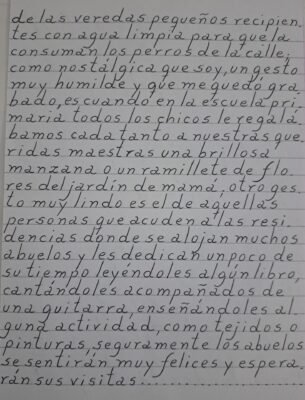 de las veredas pequeños recipien-
tes con agua limpia para que la
consuman los perros de la calle;
como nostálgica que soy, un gesto
muy humilde y que me quedó gra-
bado, es cuando en la escuela pri-
maria todos los chicos le regalá-
bamos cada tanto a nuestras que-
ridas maestras una brillosa
manzana o un ramillete de flo-
res del jardín de mamá, otro ges-
to muy lindo es el de aquellas
personas que acuden a las resi-
dencias donde se alojan muchos
abuelos y les dedican un poco de
su tiempo leyéndoles algún libro,
cantándoles acompañados de
una guitarra, enseñándoles al-
guna actividad, como tejidos o
pinturas, seguramente los abuelos
se sentirán muy felices y espera-
rán sus visitas................